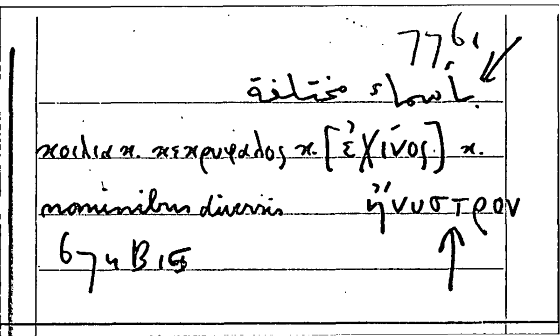 7761
بأسماء مختلفة
κοιλια κ. κεκρυφαλος κ. [ἐχῖνος] κ.
nominibus diversis ἤνυστρον
674 B 15